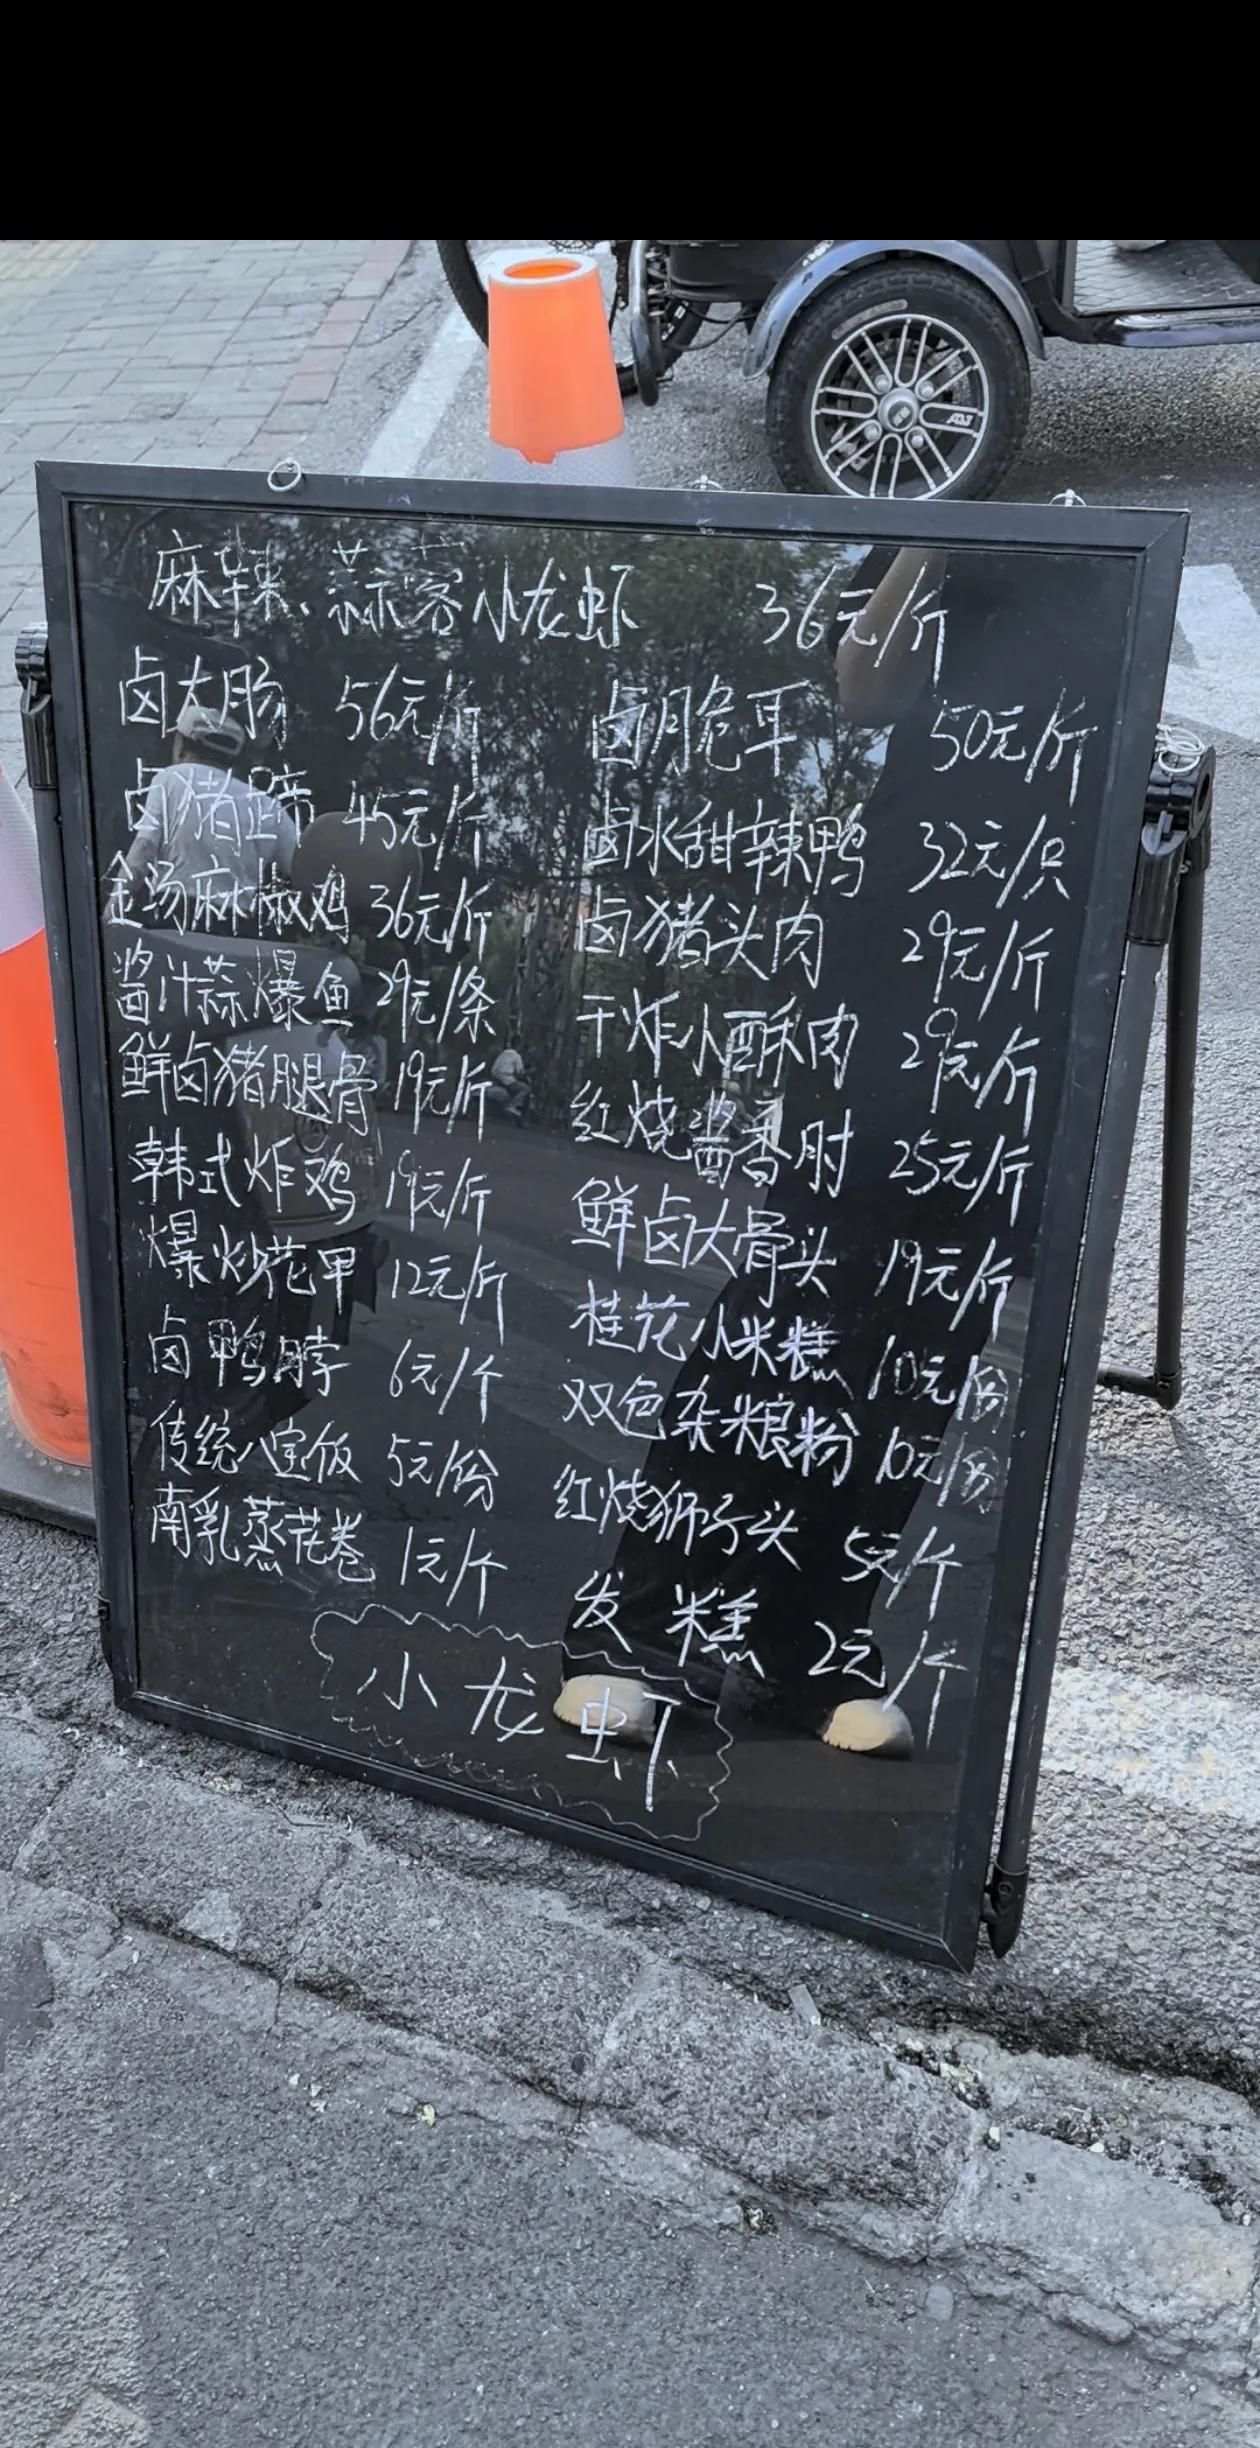 麻辣、蒜蓉小龙虾 36元/斤
卤大肠 56元/斤
卤猪蹄 45元/斤
金汤麻椒鸡 36元/斤
酱汁蒜爆鱼 29元/条
鲜卤猪腿骨 19元/斤
韩式炸鸡 19元/斤
爆炒花甲 12元/斤
卤鸭脖 6元/个
传统八宝饭 5元/份
南乳蒸花卷 1元/个
卤脆耳 50元/斤
卤水甜辣鸭 32元/只
卤猪头肉 29元/斤
干炸小酥肉 29元/斤
红烧酱香肘 25元/斤
鲜卤大骨头 19元/斤
桂花小米糕 10元/份
双色杂粮粉 10元/份
红烧狮子头 5元/个
发糕 2元/个
小龙虾